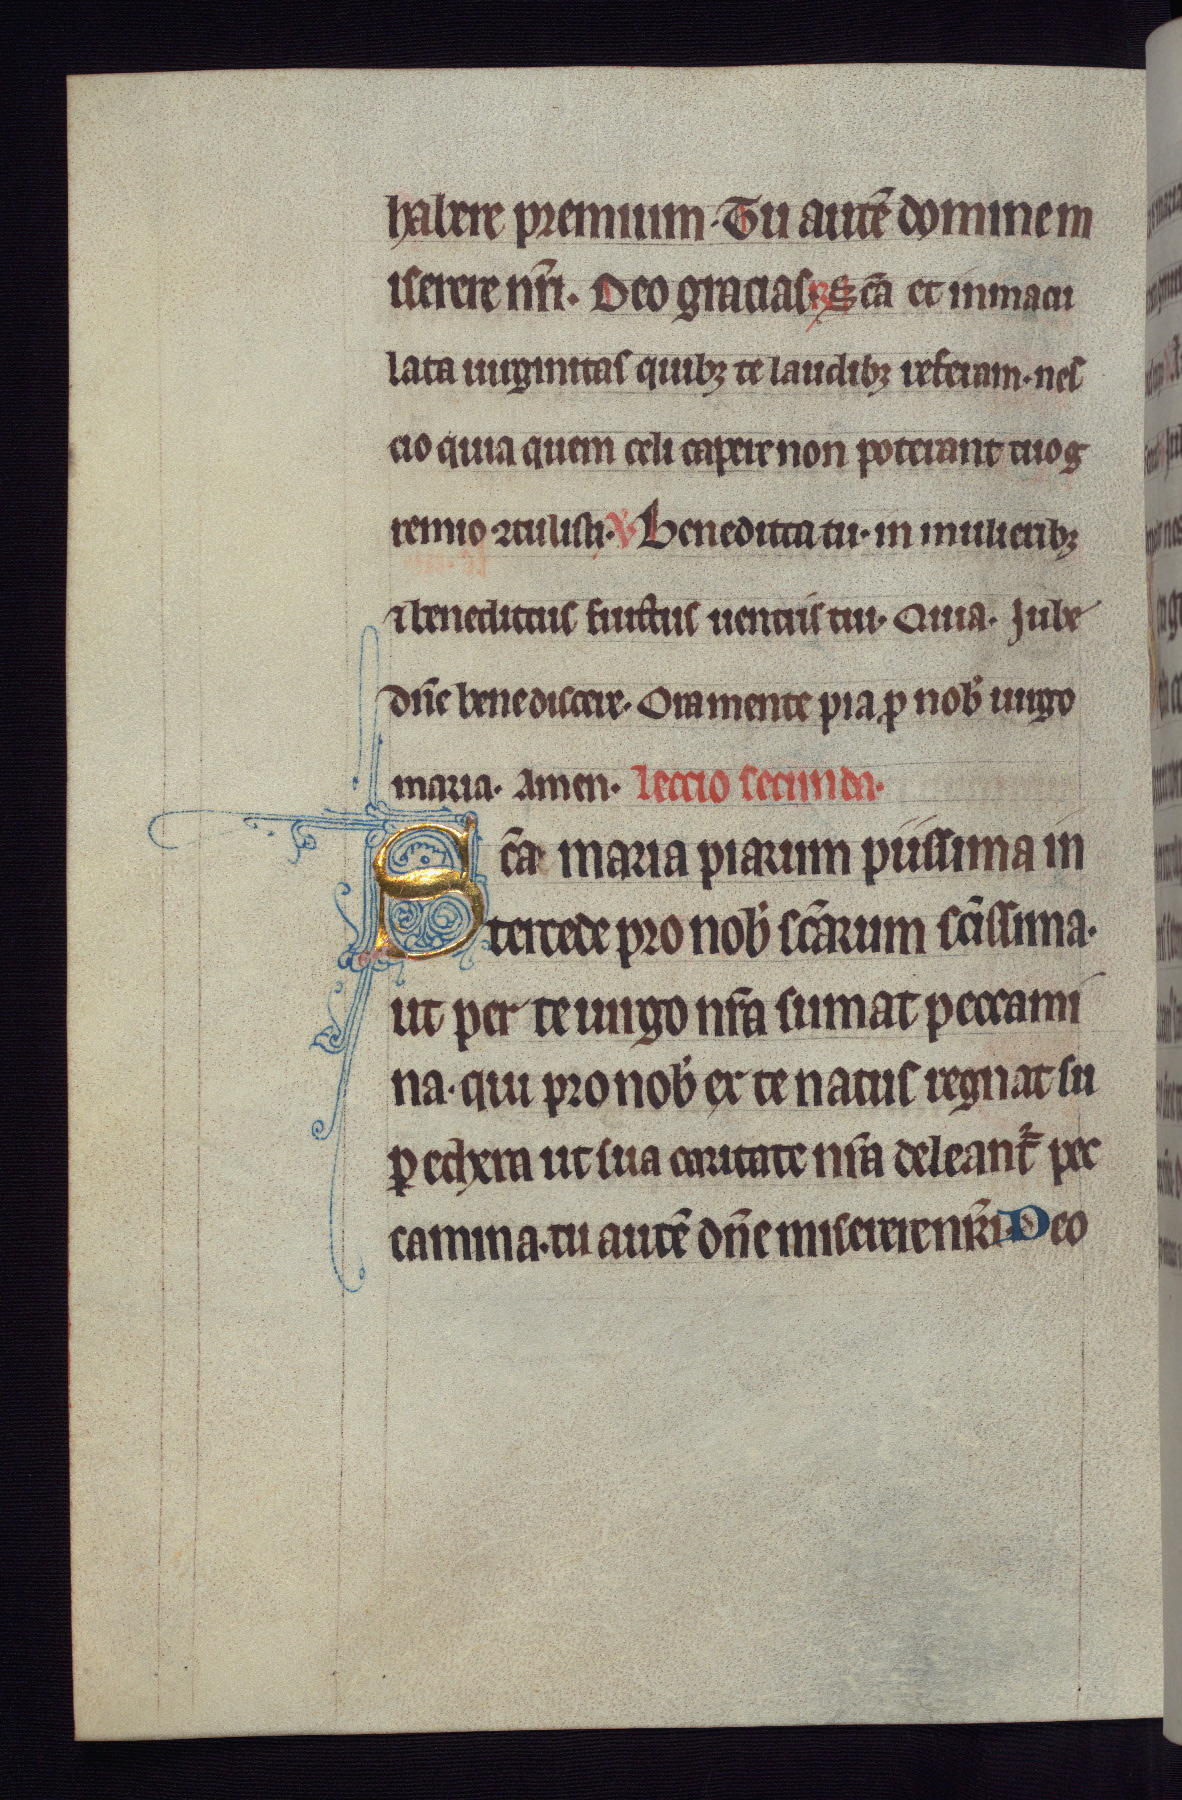 habere premium. Tu autē domine m
iserere nr̄i. Deo gracias. ℟ Sc̄a et inmacu
lata uirginitas quibꝫ te laudibꝫ referam. nes
cio quia quem celi capere non poterant tuo g
remio ꝯtulisti. ℣ Benedicta tu. in mulieribꝫ
⁊ benedictus fructus uentris tui. Quia. Iube
dn̄e benediscere. Ora mente pia ꝓ nob̄ uirgo
maria. Amen. Leccio secunda.
Sc̄a maria piarum piissima in
tercede pro nob̄ sc̄arum sc̄issima.
ut per te uirgo nr̄a sumat peccami
na. qui pro nob̄ ex te natus regnat su
ꝑ ethera ut sua caritate nr̄a deleant᷑ pec
camina. tu autē dn̄e miserere nr̄i. Deo